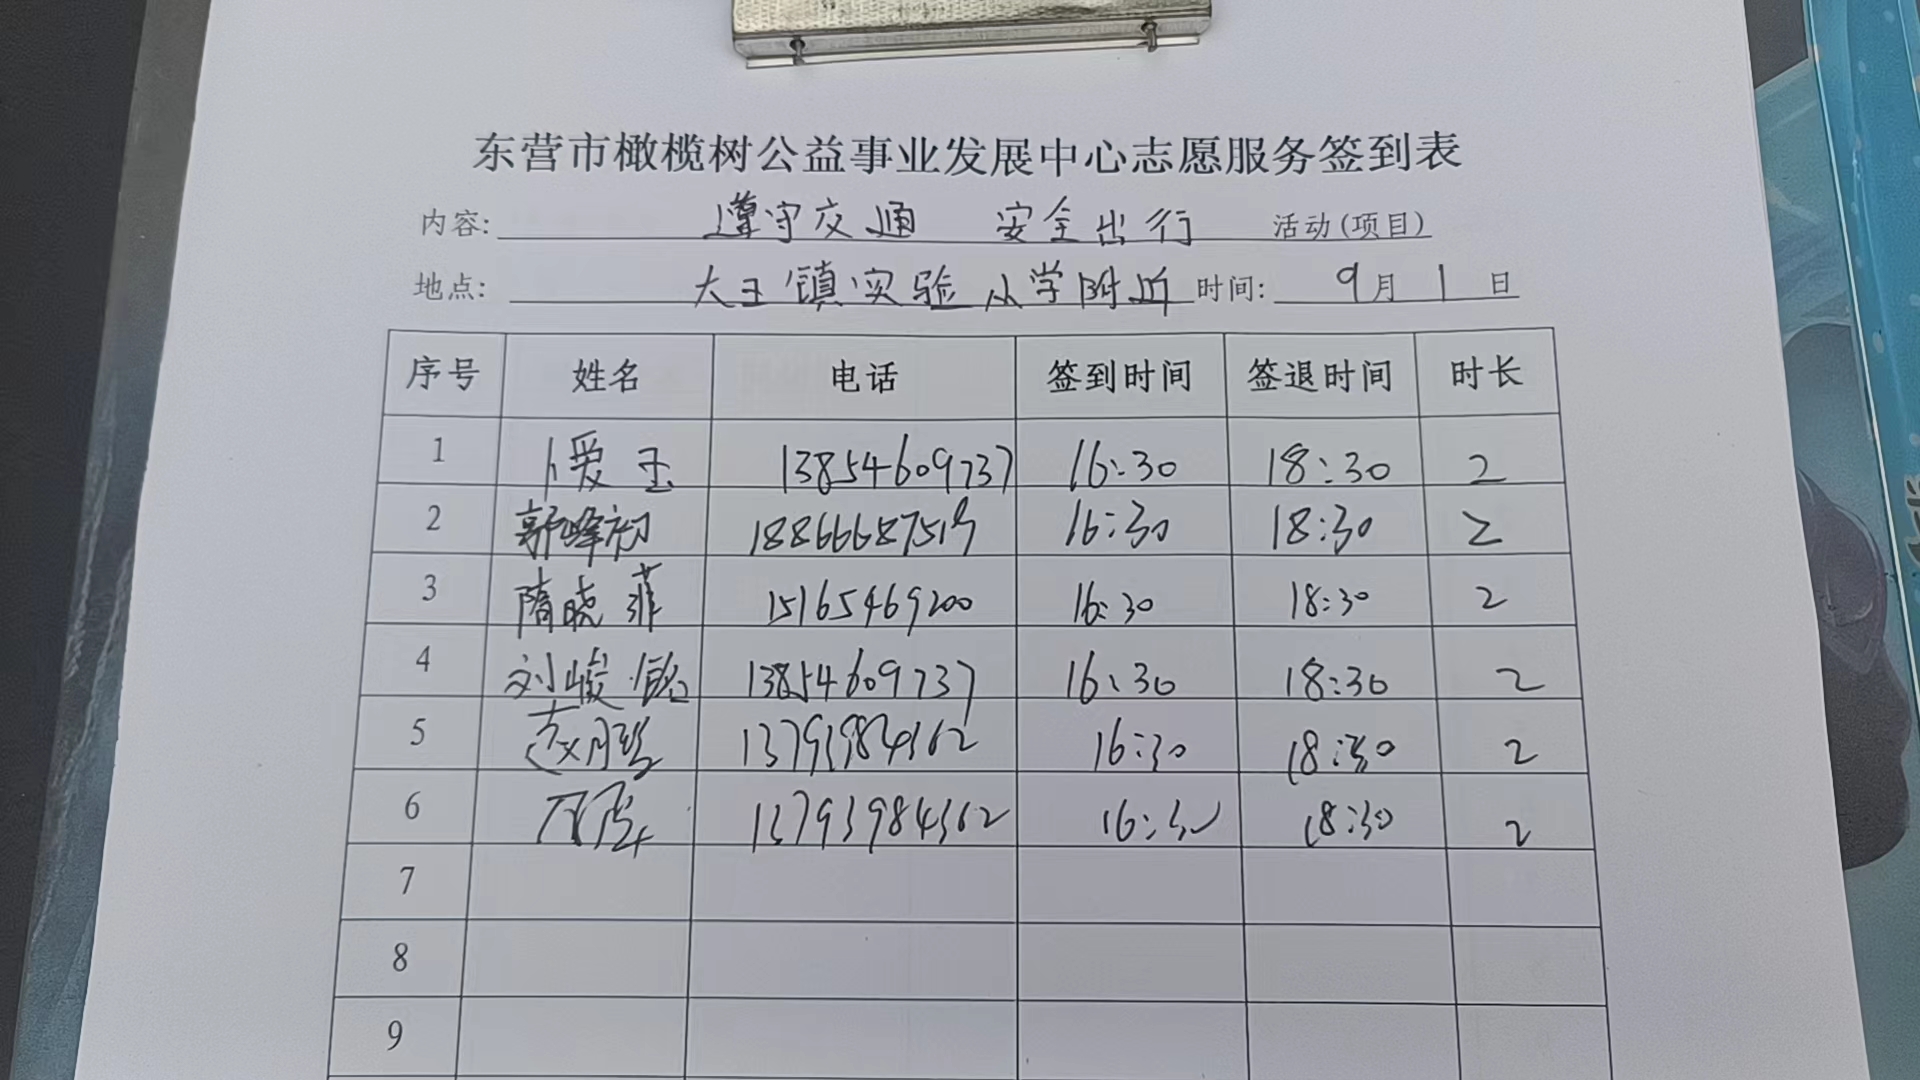 东营市橄榄树公益事业发展中心志愿服务签到表
内容: 遵守交通 安全出行 活动(项目)
地点: 大王镇实验小学附近 时间: 9月1日
序号 姓名 电话 签到时间 签退时间 时长
1 卜爱玉 13854609737 16:30 18:30 2
2 郭峰初 18866687519 16:30 18:30 2
3 隋晓菲 15165469200 16:30 18:30 2
4 刘峻铭 13854609737 16:30 18:30 2
5 13793984362 16:30 18:30 2
6 13793984362 16:30 18:30 2
7
8
9